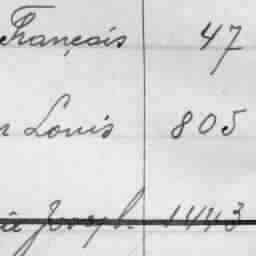 François 47
Louis 805
Joseph 1443